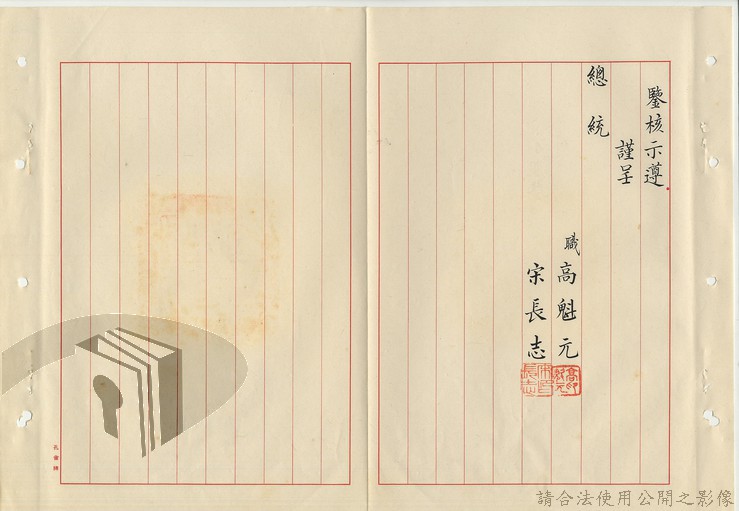 鑒核示遵
謹呈
總統
職高魁元
宋長志
請合法使用公開之影像